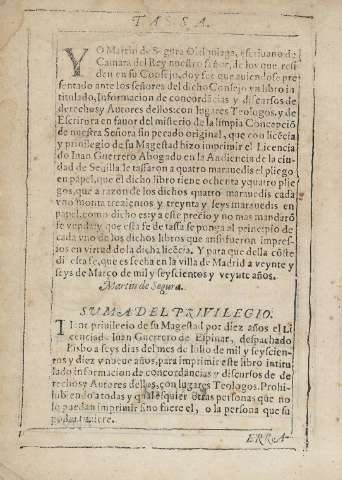 TASSA.
YO Martin de Segura Olalquiaga, escriuano de
Camara del Rey nuestro señor, de los que resi
den en su Consejo, doy fee que auiendose pre
sentado ante los señores del dicho Consejo vn libro in
titulado, Informacion de concordancias y discursos de
derechos y Autores dellos: con lugares Teologos, y de
Escritora en fauor del misterio de la limpia Concepció
de nuestra Señora sin pecado original, que con licēcia
y priuilegio de su Magestad hizo imprimir el Licencia
do Iuan Guerrero Abogado en la Audiencia de la ciu
dad de Seuilla le tassaron a quatro marauedis el pliego
en papel, que el dicho libro tiene ochenta y quatro plie
gos, que a razon de los dichos quatro marauedis cada
vno monta trezientos y treynta y seys marauedis en
papel, como dicho es: y a este precio y no mas mandarō
se venda y que esta fe de tassa se ponga al principio de
cada vno de los dichos libros que ansi fueren impres-
sos en virtud de la dicha licēcia. Y para que dello cōste
di esta fe, que es fecha en la villa de Madrid a veynte y
seys de Março de mil y seyscientos y veynte años.
Martin de Segura.
SUMA DEL PRIVILEGIO.
Tiene priuilegio de su Magestad por diez años el Li
cenciado Iuan Guerrero de Espinar, despachado
en a seys dias del mes de Iulio de mil y seyscien-
tos y diez y nueue años, para imprimir este libro intitu
lado informacion de concordancias y discursos de de
rechos y Autores dellos, con lugares Teologos. Prohi-
biendo a todas y qualesquier otras personas que no
lo puedan imprimir sino fuere el, o la persona que su
poder tuuiere.
ERRA-